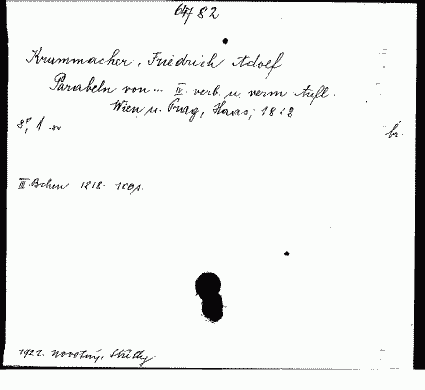 Krummacher, Friedrich Adolf
Parabeln von ... IV. verb. u. verm Aufl.
Wien u. Prag, Haas, 1818
8°, 1
br.
III. Bchen 1818.
1922. Novotný,